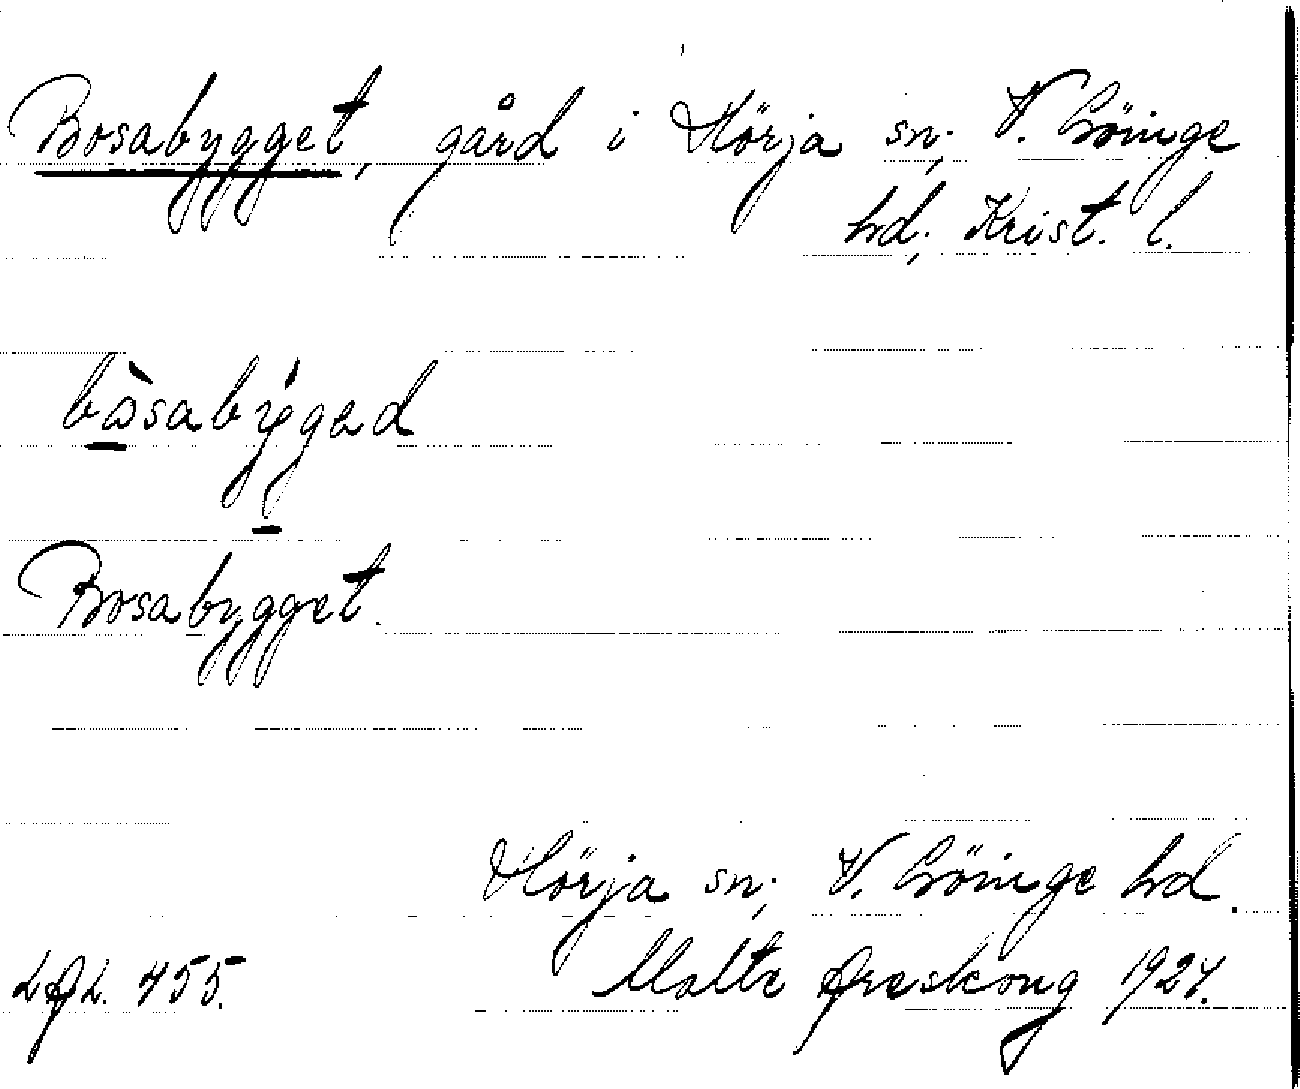 Bosabygget, gård i Hörja sn; V. Göinge
hd; Krist. l.
bòsabýgad
Bosabygget.
Hörja sn; V. Göinge hd.
LAL. 455. Malte Areskoug 1924.